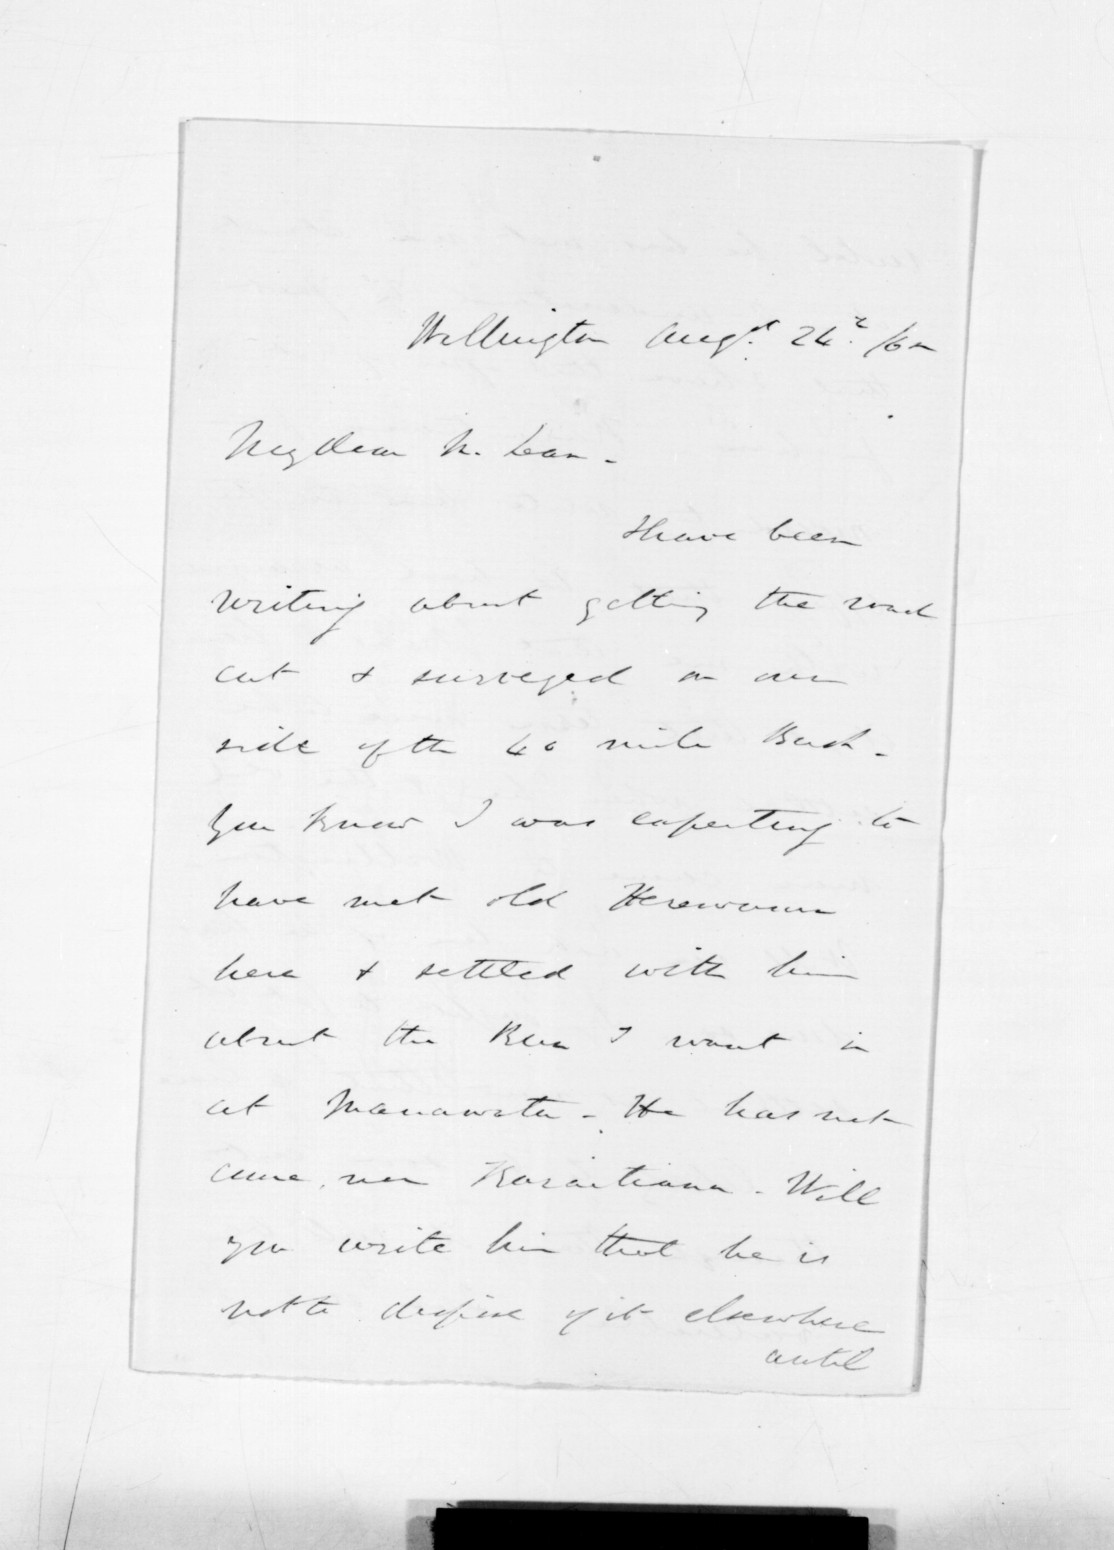 Wellington Augst. 24th /60
My dear McLean -
I have been
writing about getting the road
cut & surveyed on our
side of the 40 mile Bush -
You know I was expecting to
have met old Herewaru
here & settled with him
about the Run I want in
at Manawatu - He has not
come, nor Karaitiana - Will
you write him that he is
not to dispose of it elsewhere
until